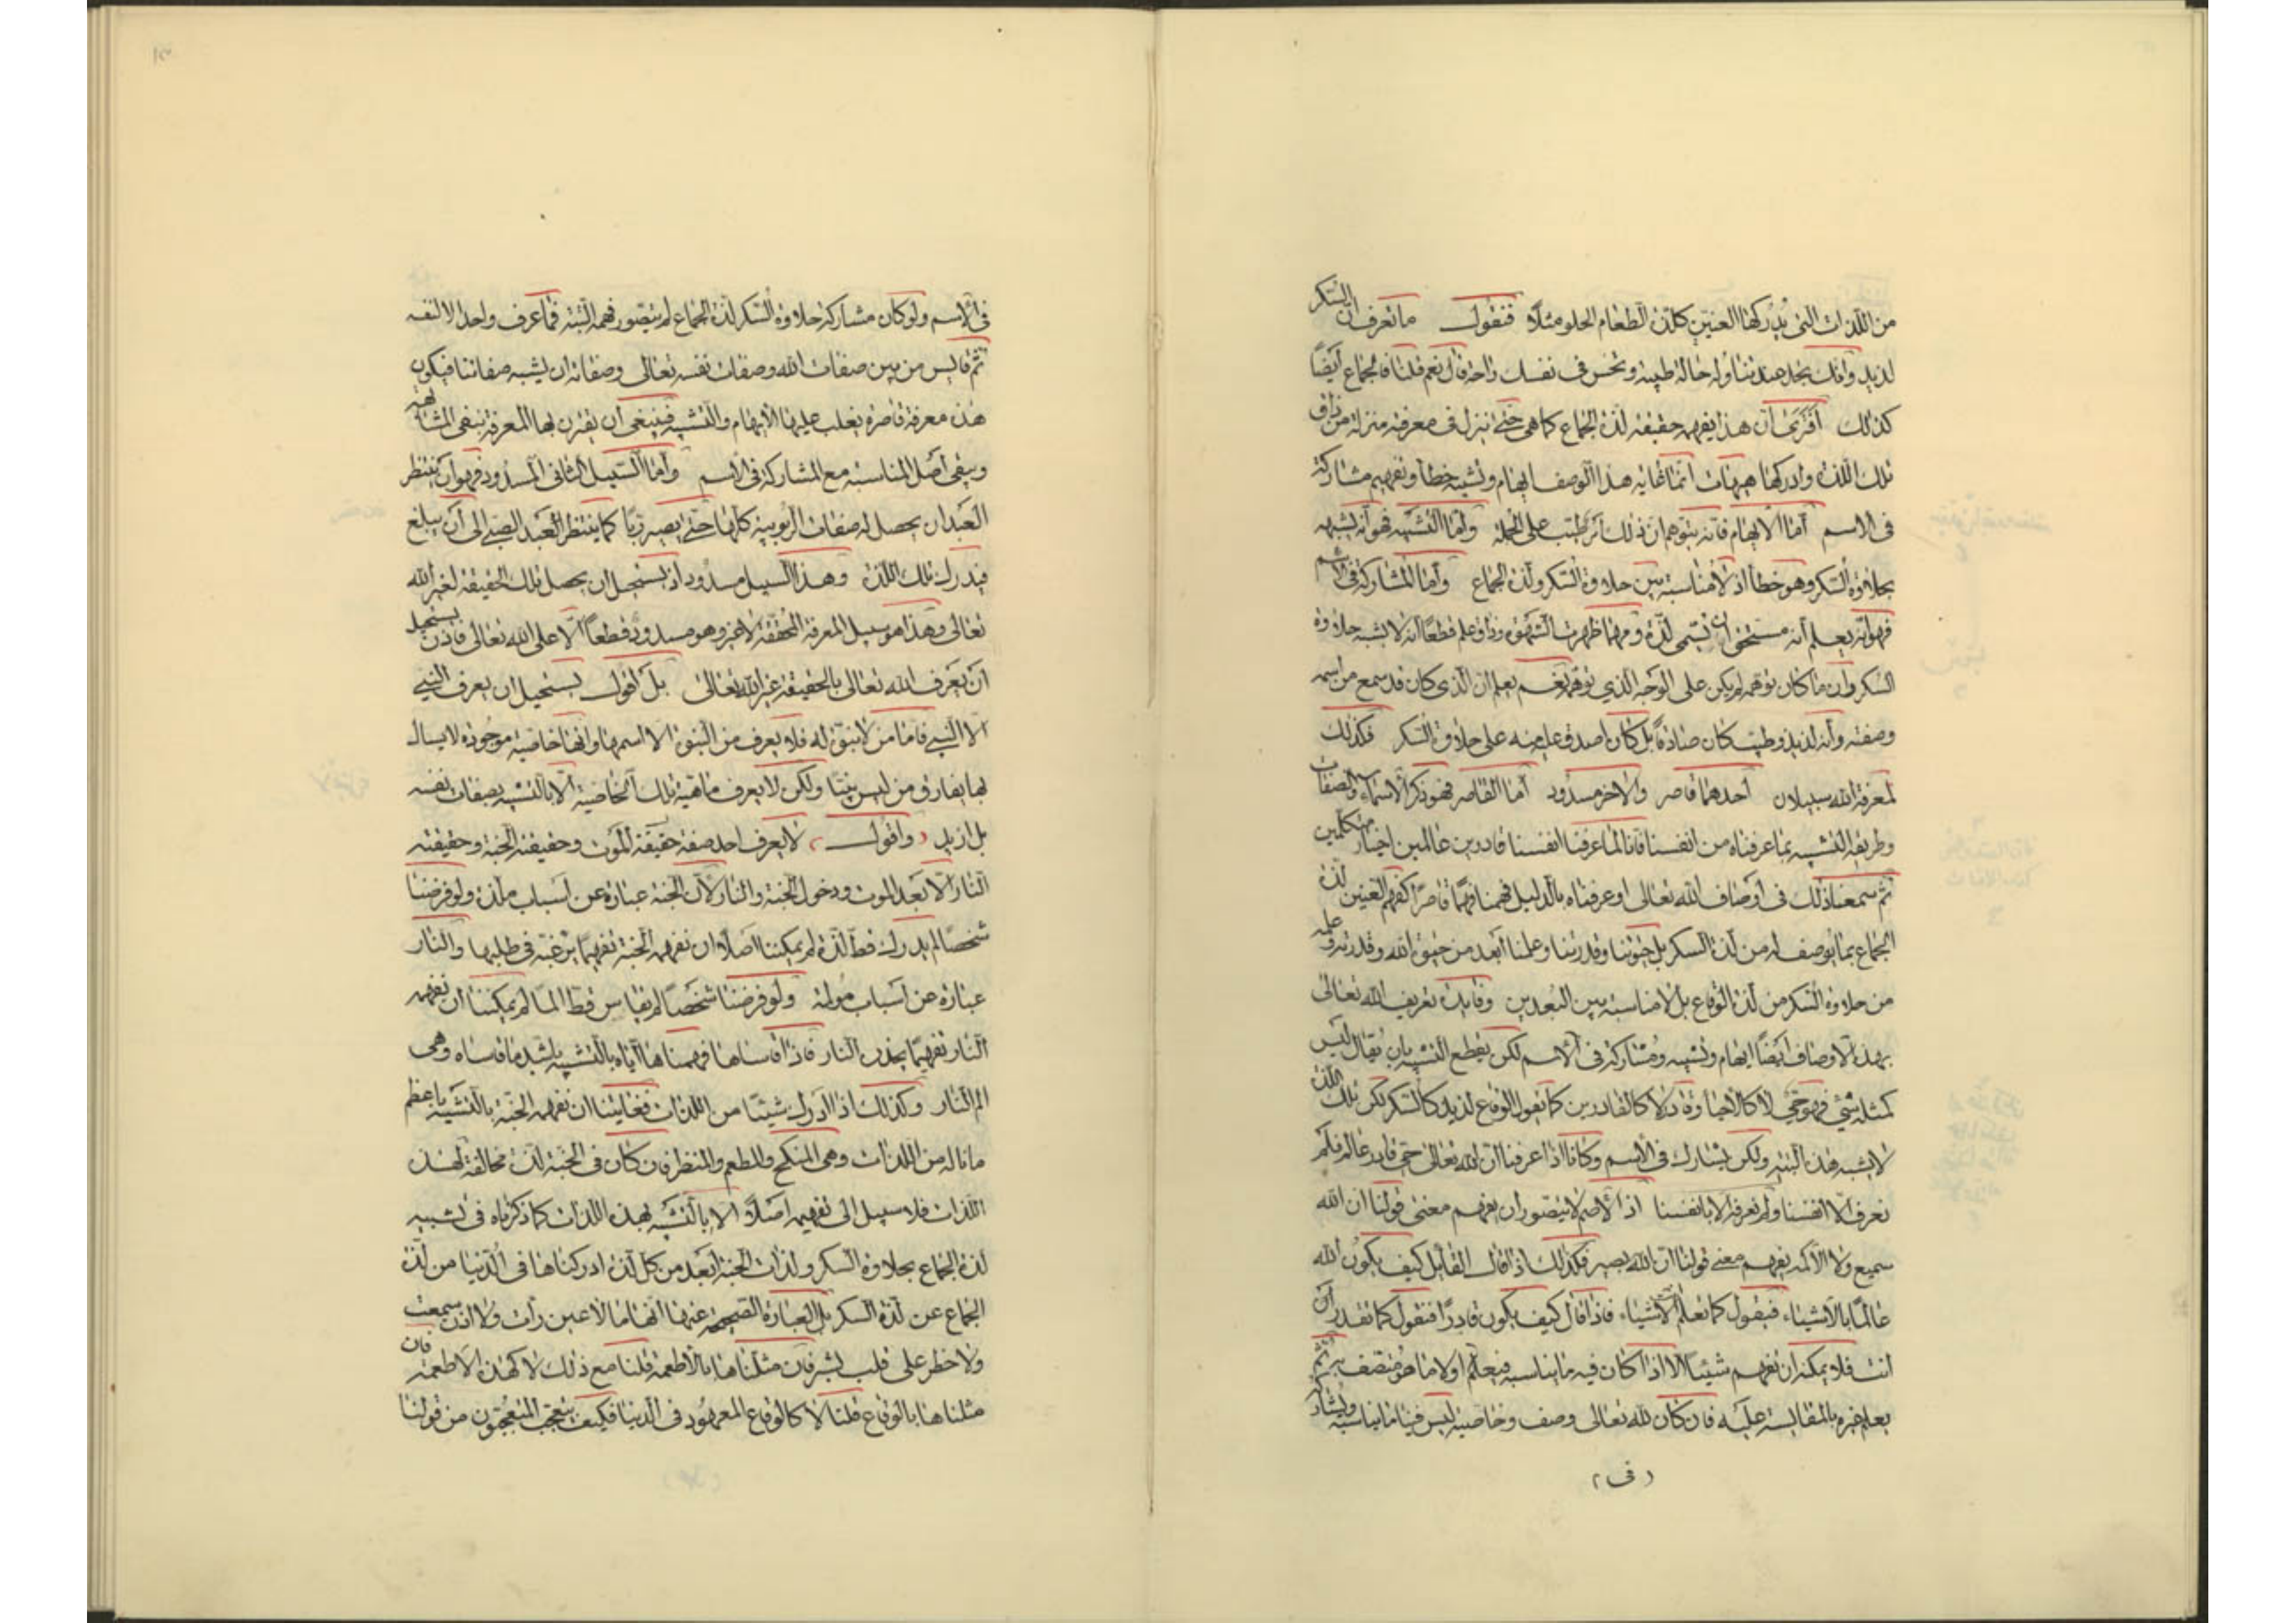 من اللذات التى يدركها العنين كلذة الطعام الحلو مثلا فنقول ما تعرف ان السكر
لذيذ وانك تجد عند تناوله حالة طيبة وتحس فى نفسك راحة قال نعم قلنا فالجماع ايضا
كذلك أفترى أن هذا يفهمه حقيقة لذة الجماع كما هى حتى ينزل فى معرفته منزلة من ذاق
تلك اللذة وادركها هيهات انما غاية هذا الوصف ايهام وتشبيه خطأ وتفهيم مشاركة
فى الاسم أما الايهام فانه يتوهم ان ذلك أمر طيب على الجملة وأما التشبيه فهو أنه يشبهه
بحلاوة السكر وهو خطأ اذ لا مناسبة بين حلاوة السكر ولذة الجماع وأما المشاركة فى الاسم
فهو أنه يعلم أنه مستحق ان تسمى لذة ومهما ظهرت الشهوة وذاق علم قطعا انه لا يشبه حلاوة
السكر وان ما كان توهمه لم يكن على الوجه الذي توهمه نعم يعلم ان الذى كان قد سمع من اسمه
وصفته وأنه لذيذ وطيب كان صادقا بل كان اصدق عليه منه على حلاوة السكر فكذلك
لمعرفة الله سبيلان أحدهما قاصر والاخر مسدود أما القاصر فهو ذكر الاسماء والصفات
وطريقه التشبيه بما عرفناه من انفسنا فانا لما عرفنا انفسنا قادرين عالمين احياء متكلمين
ثم سمعنا ذلك فى أوصاف الله تعالى او عرفناه بالدليل فهمنا فهما قاصرا كفهم العنين لذة
الجماع بما يوصف له من لذة السكر بل حيوتنا وقدرتنا وعلمنا أبعد من حيوة الله وقدرته وعلمه
من حلاوة السكر من لذة الوقاع بل لا مناسبة بين البعدين وفايدة تعريف الله تعالى
بهذه الاوصاف ايضا ايهام وتشبيه ومشاركة فى الاسم لكن يقطع التشبيه بان يقال ليس
كمثله شئ فهو حى لا كالاحياء وقادر لا كالقادرين كما تقول الوقاع لذيذ كالسكر لكن تلك اللذة
لا يشبه هذه البتة ولكن يشارك فى الاسم وكانا اذا عرفنا ان الله تعالى حى قادر عالم فلم
نعرف الا انفسنا ولم نعرفه الا بانفسنا اذ الأصم لا يتصور ان يفهم معنى قولنا ان الله
سميع ولا الأكمه يفهم معنى قولنا ان الله بصير فكذلك اذا قال القائل كيف يكون الله
عالما بالأشياء فيقول كما تعلم انت الأشياء فاذا قال كيف يكون قادرا فنقول كما تقدر أن
انت فلا يمكنه ان يفهم شيئا الا اذا كان فيه ما يناسبه فيعلم اولا ما هو متصف به ثم
يعلم غيره بالمقايسة عليه فان كان لله تعالى وصف وخاصية ليس فينا ما يناسبه ويشاركه
(فى)
فى الاسم ولو كان مشاركة حلاوة السكر لذة الجماع لم يتصور فهمه البتة فما عرف واحد الا نفسه
ثم قايس من بين صفات الله وصفات نفسه تعالى وصفاته ان يشبه صفاتنا فيكون
هذه معرفة قاصرة يغلب عليها الايهام والتشبيه فينبغى أن يقترن بها المعرفة بنفى المشابهة
وينفى أصل المناسبة مع المشاركة فى الاسم وأما السبيل الثانى المسدود فهو أن ينتظر
العبد ان يحصل له صفات الربوبية كلها حتى يصير ربا كما ينتظر العبد الصبى الى أن يبلغ
فيدرك تلك اللذة وهذا السبيل مسدود اذ يستحيل ان يحصل تلك الحقيقة لغير الله
تعالى وهذا هو سبيل المعرفة المحققة لا غير وهو مسدود قطعا الا على الله تعالى فاذن يستحيل
أن يعرف الله تعالى بالحقيقة غير الله تعالى بل أقول يستحيل ان يعرف النبى
الا النبى فاما من لا نبوة له فلا يعرف من النبوة الا اسمها وانها خاصية موجودة لانسان
بها يفارق من ليس نبيا ولكن لا يعرف ماهية تلك الخاصية الا بالتشبيه بصفات نفسه
بل ازيد (واقول) لا يعرف احد صفة حقيقة الموت وحقيقة الجنة وحقيقة
النار الا بعد الموت ودخول الجنة والنار لأن الجنة عبارة عن اسباب ملذة ولو فرضنا
شخصا لم يدرك قط لذة لم يمكننا اصلا ان نفهمه الجنة تفهيما يرغبه فى طلبها والنار
عبارة عن اسباب مولمة ولو فرضنا شخصا لم يقاس قط الما لم يمكننا ان نفهمه
النار تفهيما يحذره النار فاذا قاساها فهمناها اياه بالتشبيه باشد ما قاساه وهى
الم النار وكذلك اذا ادرك شيئا من اللذات فغايتنا ان نفهمه الجنة بالتشبيه باعظم
ما ناله من اللذات وهى المنكح والمطعم والمنظر فان كان فى الجنة لذة مخالفة لهذه
اللذات فلا سبيل الى تفهيمه اصلا الا بالتشبيه بهذه اللذات كما ذكرناه فى تشبيه
لذة الجماع بحلاوة السكر ولذات الجنة أبعد من كل لذة ادركناها فى الدنيا من لذة
الجماع عن لذة السكر بل العبارة الصحيحة عنها انها ما لا عين رأت ولا اذن سمعت
ولا خطر على قلب بشر فان مثلناها بالأطعمة قلنا مع ذلك لا كهذه الاطعمة فان
مثلناها بالوقاع قلنا لا كالوقاع المعهود فى الدنيا فكيف يتعجب المتعجبون من قولنا